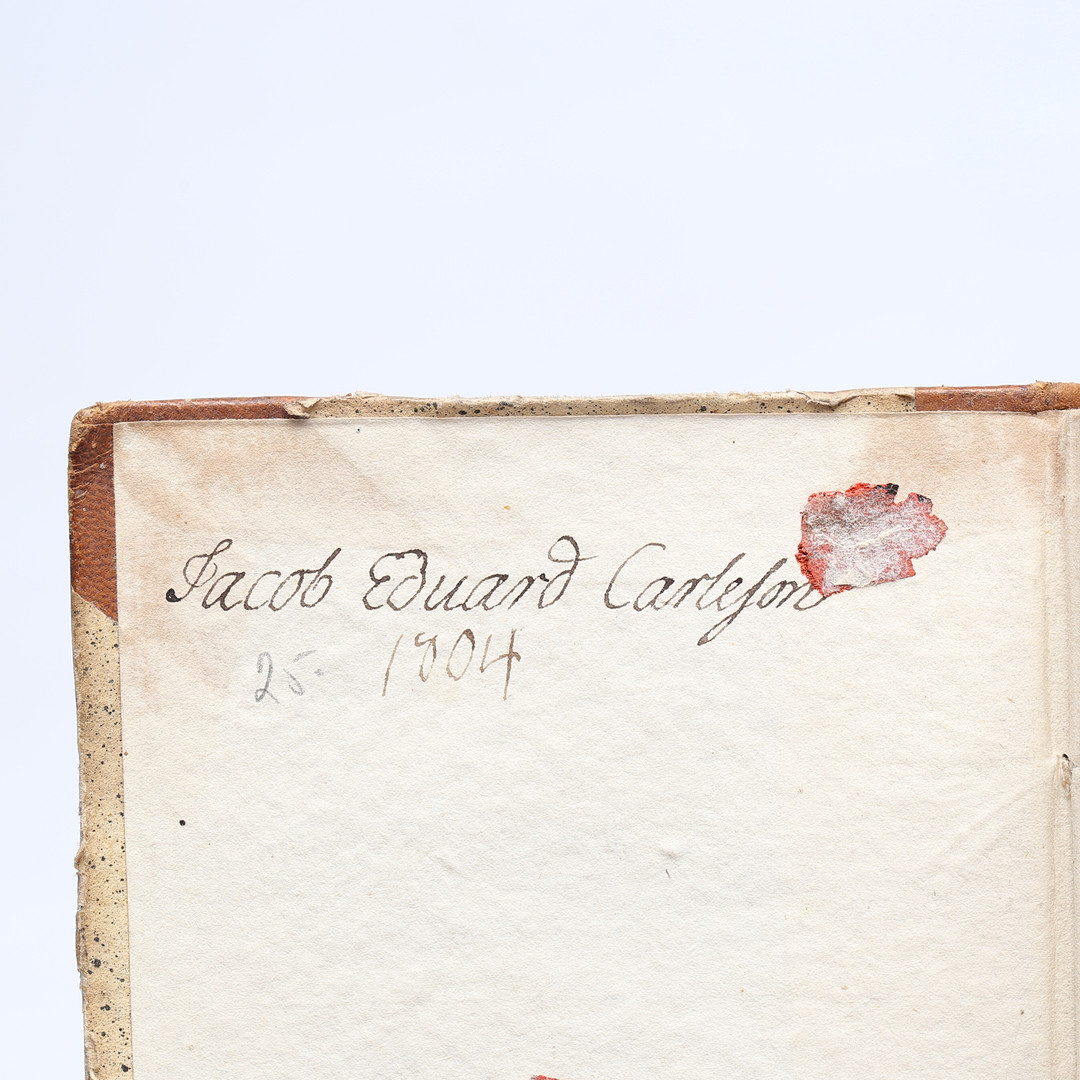 Jacob Eduard Carleson
1804
25-